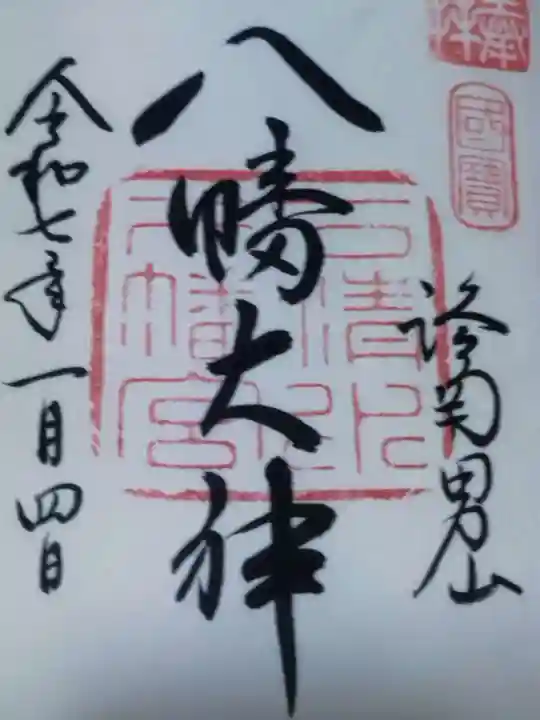 奉拝
國寳
䜟峯男山
八幡大神
石清水
八幡宮
令和七年一月四日